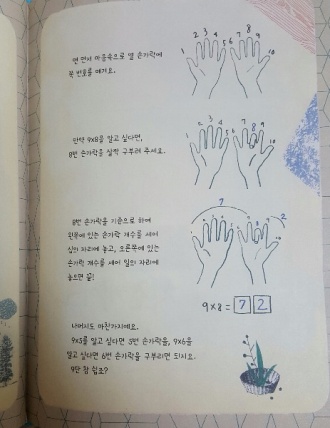 맨 먼저 마음속으로 열 손가락에
쭉 번호를 매겨요.
1 2 3 4 5 6 7 8 9 10
만약 9×8을 알고 싶다면,
8번 손가락을 살짝 구부려 주세요.
1 2 3 4 5 6 7 8 9 10
8번 손가락을 기준으로 하여
왼쪽에 있는 손가락 개수를 세어
십의 자리에 놓고, 오른쪽에 있는
손가락 개수를 세어 일의 자리에
놓으면 끝!
7 2
9×8 = 7 2
나머지도 마찬가지예요.
9×5를 알고 싶다면 5번 손가락을, 9×6을
알고 싶다면 6번 손가락을 구부리면 되지요.
9단 참 쉽죠?